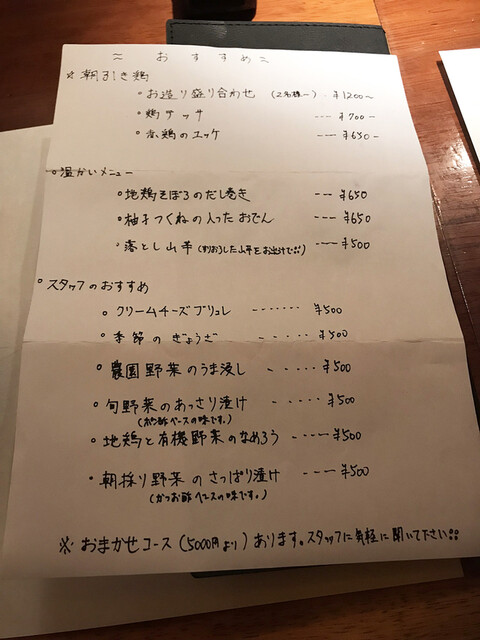 ≈ おすすめ ≈
※ 朝引き鶏
・お造り盛り合わせ (2名様〜) ¥1200〜
・鶏サッサ --- ¥700-
・赤鶏のユッケ --- ¥650-
○温かいメニュー
・地鶏そぼろのだし巻き --- ¥650
・柚子つくねの入ったおでん --- ¥650
・落とし山芋 (すりおろした山芋をお出汁で) --- ¥500
○スタッフのおすすめ
・クリームチーズブリュレ ------- ¥500
・季節のぎょうざ ----- ¥500
・農園野菜のうま浸し ----- ¥500
・旬野菜のあっさり漬け ----- ¥500
(ポン酢ベースの味です。)
・地鶏と有機野菜のなめろう ---- ¥500
・朝採り野菜のさっぱり漬け ---- ¥500
(かつお酢ベースの味です。)
※ おまかせコース (5000円より) あります。スタッフに気軽に聞いて下さい!!